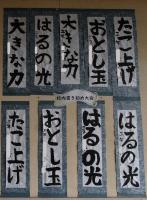 たこ上げ
おとし玉
大きな力
はるの光
大きな力
校内書き初め大会
はるの光
はるの光
おとし玉
たこ上げ